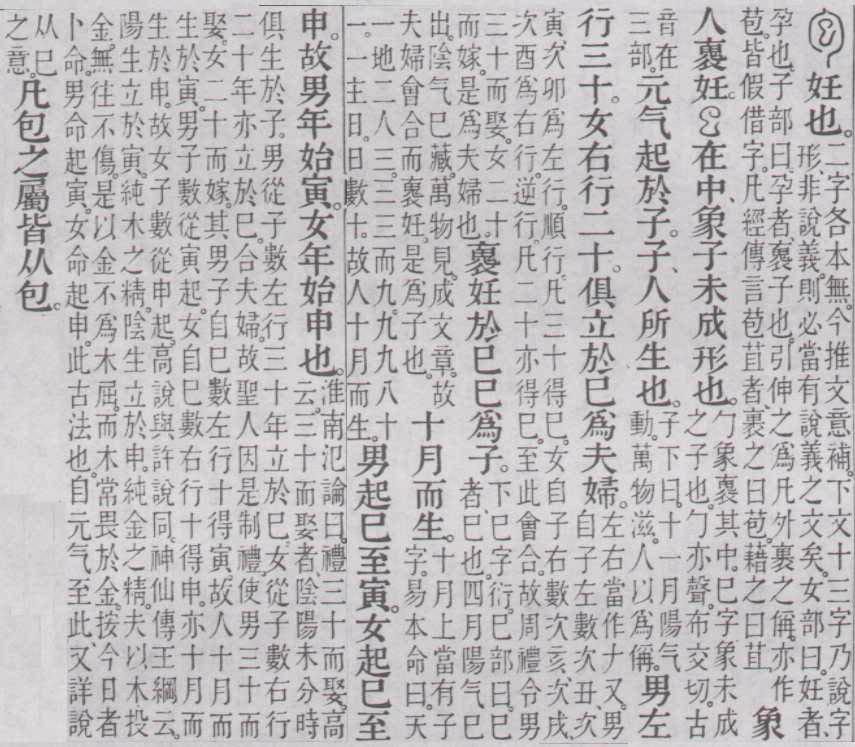 妊也。二字各本無。今推文意補。下文十三字乃說字
形、非說義。則必當有說義之文矣。女部曰。妊者、
孕也。子部曰。孕者、褢子也。引伸之爲凡外裹之偁。亦作
苞。皆假借字。凡經傳言苞苴者、裹之曰苞。藉之曰苴。象
人褢妊。巳在中、象子未成形也。勹象裹其中。巳字象未成
之子也。勹亦聲。布交切。古
音在
三部。元气起於子。子、人所生也。子下曰。十一月陽气
動。萬物滋。人以爲偁。男左
行三十。女右行二十。俱立於巳。爲夫婦。左右當作𠂇又。男
自子左數次丑、次
寅、次卯爲左行。順行凡三十得巳。女自子右數次亥、次戌、
次酉爲右行。逆行。凡二十亦得巳。至此會合。故周禮令男
三十而娶。女二十
而嫁。是爲夫婦也。褢妊於巳。巳爲子。下巳字衍。巳部曰。巳
者、巳也。四月陽气巳
出。陰气巳藏。萬物見。成文章。故
夫婦會合而褢妊。是爲子也。十月而生。十月上當有子
字。易本命曰。天
一地二人三。三三而九。九九八十
一。一主日。日數十。故人十月而生。男起巳至寅。女起巳至
申。故男年始寅。女年始申也。淮南氾論曰。禮三十而娶。高
云。三十而娶者。陰陽未分時
俱生於子。男從子數左行三十年立於巳。女從子數右行
二十年亦立於巳。合夫婦。故聖人因是制禮。使男三十而
娶。女二十而嫁。其男子自巳數左行十得寅。故人十月而
生於寅。男子數從寅起。女自巳數右行十得申。亦十月而
生於申。故女子數從申起。高說與許說同。神仙傳王綱云。
陽生立於寅。純木之精。陰生立於申。純金之精。夫以木投
金。無往不傷。是以金不爲木屈。而木常畏於金。按今日者
卜命。男命起寅。女命起申。此古法也。自元气至此、又詳說
从巳
之意。凡包之屬皆从包。